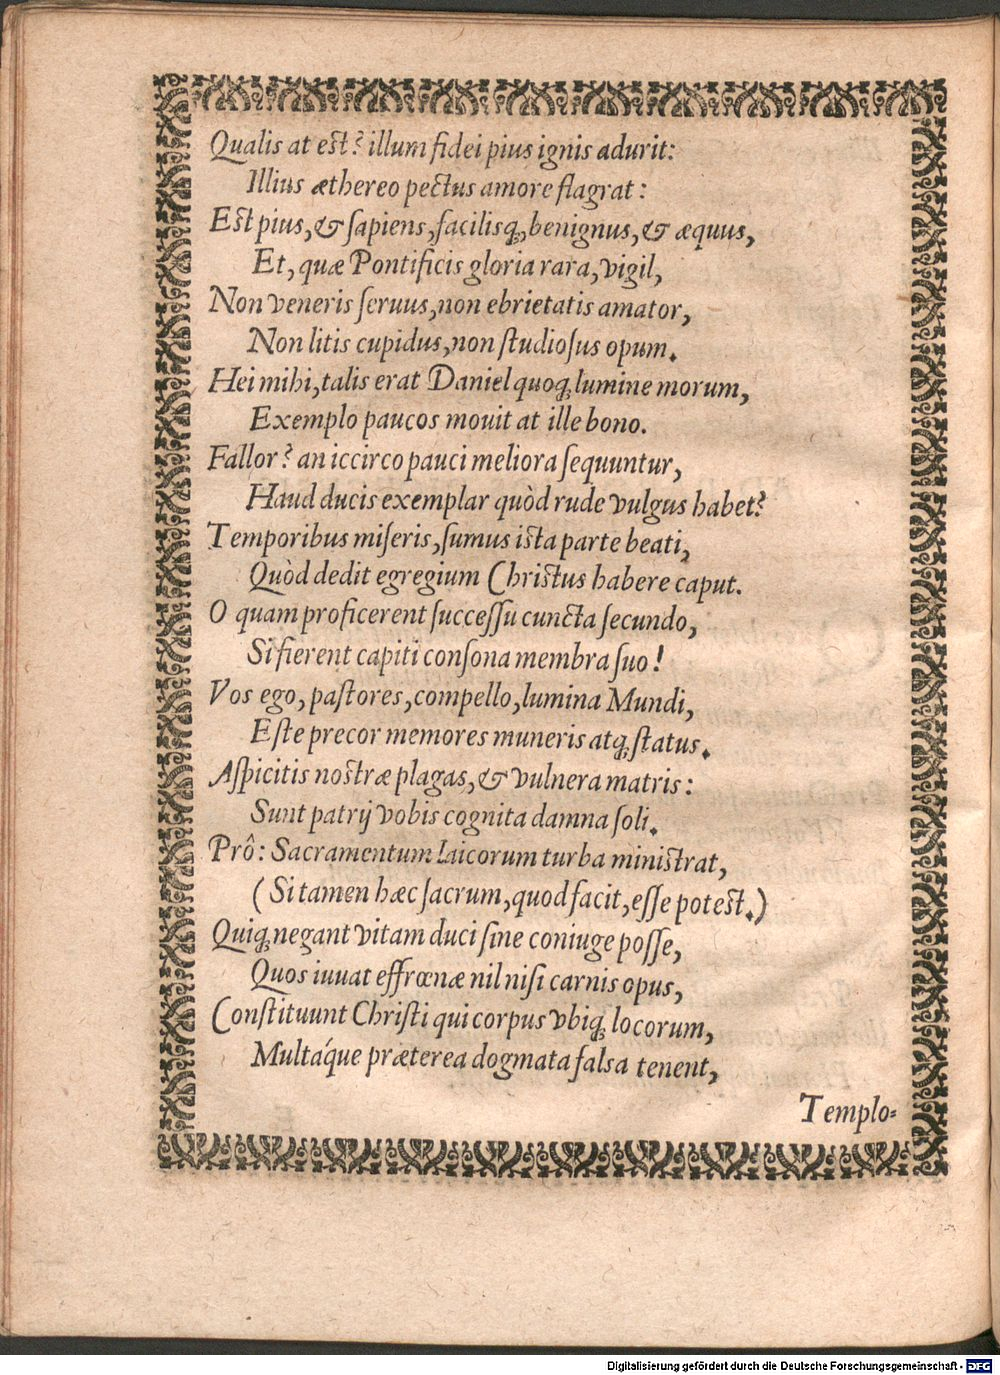 Qualis at est? illum fidei pius ignis adurit:
Illius æthereo pectus amore flagrat:
Est pius, & ſapiens, facilisq;, benignus, & æquus,
Et, quæ Pontificis gloria rara, vigil,
Non veneris ſeruus, non ebrietatis amator,
Non litis cupidus, non ſtudioſus opum.
Hei mihi, talis erat Daniel quoq; lumine morum,
Exemplo paucos mouit at ille bono.
Fallor? an iccirco pauci meliora ſequuntur,
Haud ducis exemplar quòd rude vulgus habet?
Temporibus miſeris, ſumus ista parte beati,
Quòd dedit egregium Christus habere caput.
O quam proficerent ſucceſſu cuncta ſecundo,
Si fierent capiti conſona membra ſuo!
Vos ego, paſtores, compello, lumina Mundi,
Eſte precor memores muneris atq; ſtatus.
Aſpicitis nostræ plagas, & vulnera matris:
Sunt patrij vobis cognita damna ſoli.
Prô: Sacramentum Laicorum turba ministrat,
(Si tamen hæc ſacrum, quod facit, eſſe potest.)
Quiq; negant vitam duci ſine coniuge poſſe,
Quos iuuat effrœnæ nil niſi carnis opus,
Conſtituunt Chriſti qui corpus vbiq; locorum,
Multáque præterea dogmata falsa tenent,
Templo-
Digitalisierung gefördert durch die Deutsche Forschungsgemeinschaft - DFG